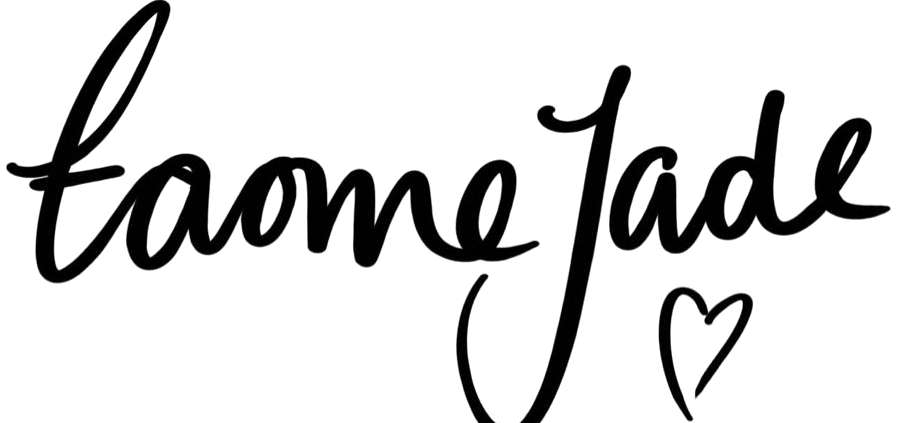 taome Jade